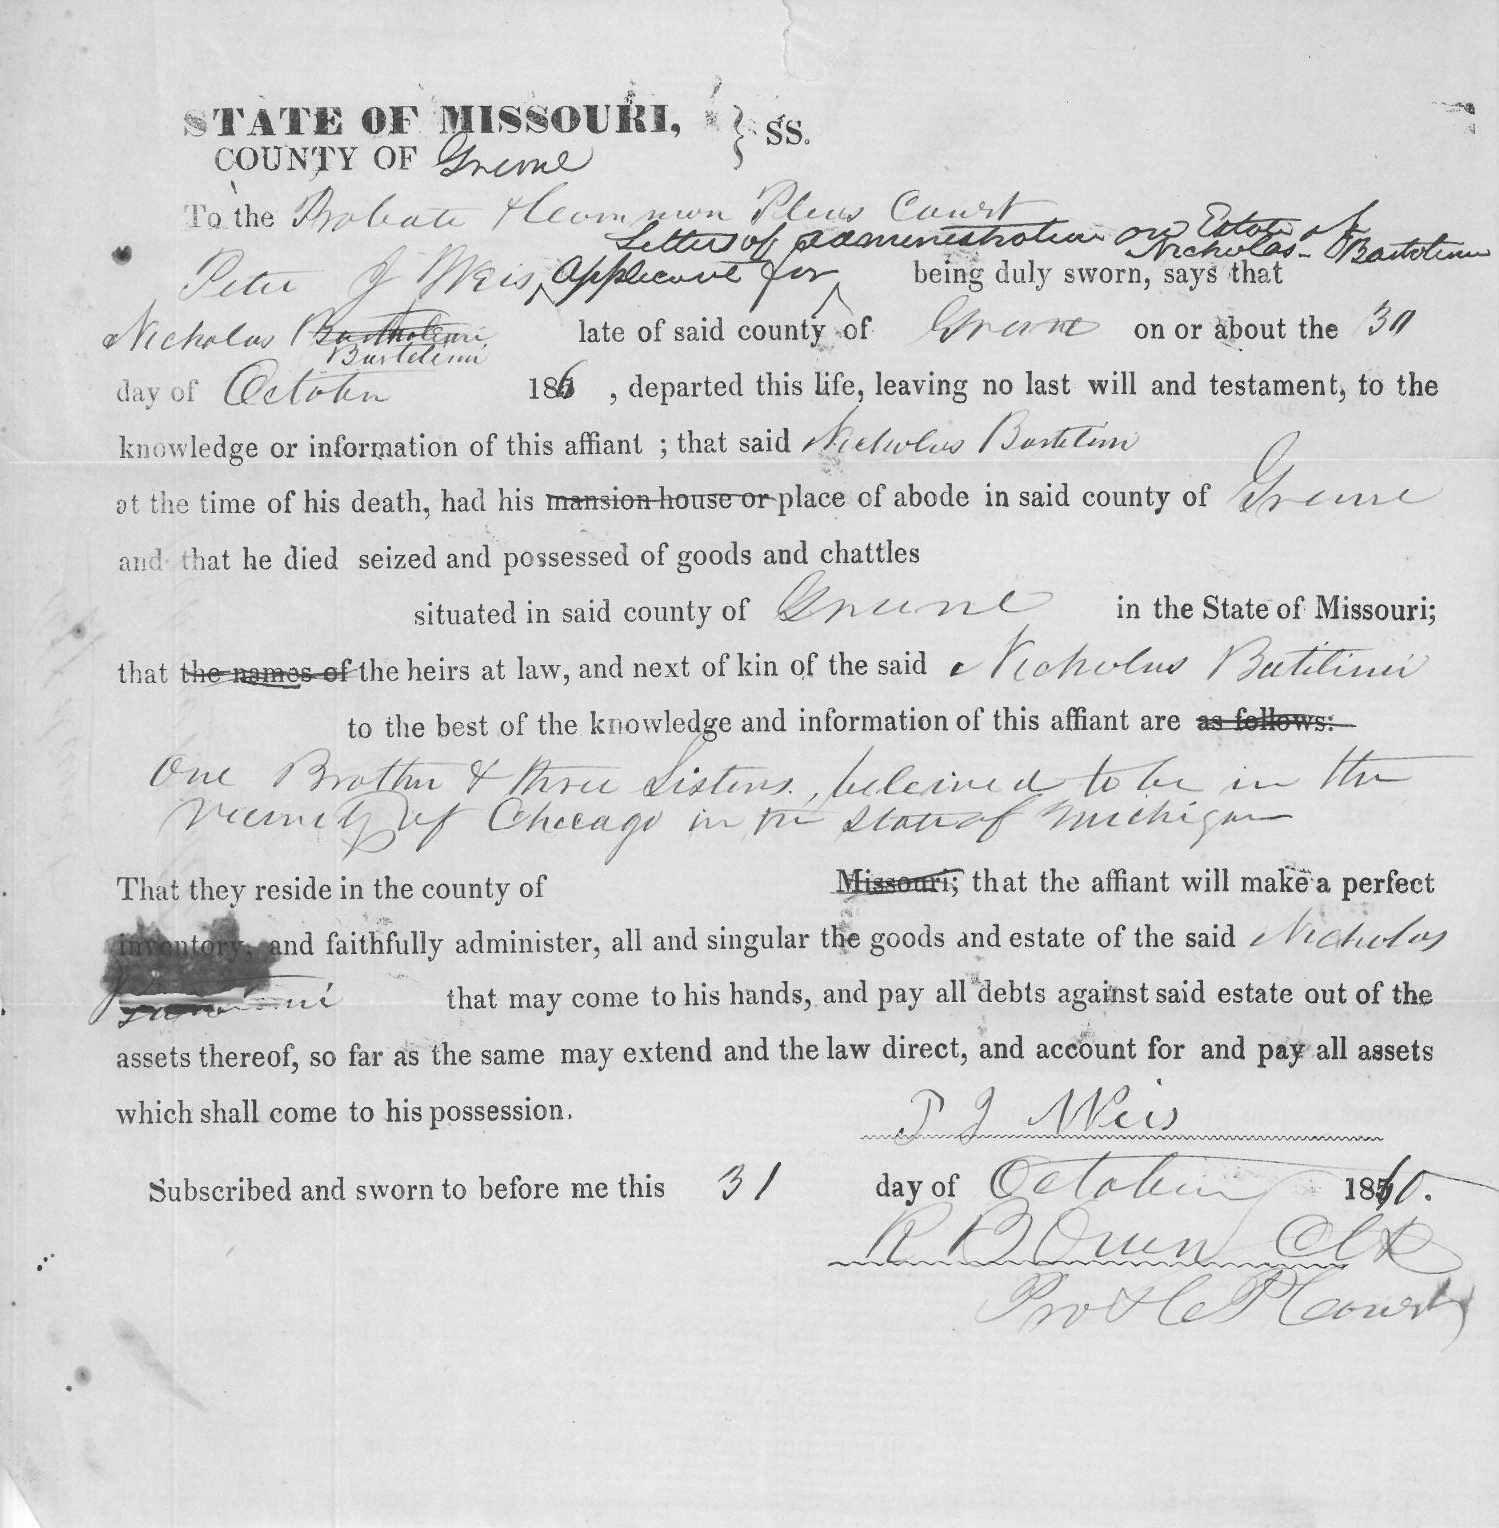 STATE OF MISSOURI, } SS.
COUNTY OF Greene
To the Probate & Common Pleas Court
Letters of administration on Estate of
Nicholas Bartolimi
Peter J Weis, applicant for being duly sworn, says that
Nicholas Bartholemi late of said county of Greene on or about the 30
Bartelimi
day of October 186 , departed this life, leaving no last will and testament, to the
knowledge or information of this affiant ; that said Nicholas Bartelimi
at the time of his death, had his mansion house or place of abode in said county of Greene
and that he died seized and possessed of goods and chattles
situated in said county of Greene in the State of Missouri;
that the names of the heirs at law, and next of kin of the said Nicholas Batilimi
to the best of the knowledge and information of this affiant are as follows:
One Brother & three Sisters, beleived to be in the
vicinity of Chicago in the State of Michigan
That they reside in the county of Missouri; that the affiant will make a perfect
inventory, and faithfully administer, all and singular the goods and estate of the said Nicholas
that may come to his hands, and pay all debts against said estate out of the
assets thereof, so far as the same may extend and the law direct, and account for and pay all assets
which shall come to his possession.
P J Weis
Subscribed and sworn to before me this 31 day of October 1860.
R B Owen Clk
Pro & C P Court